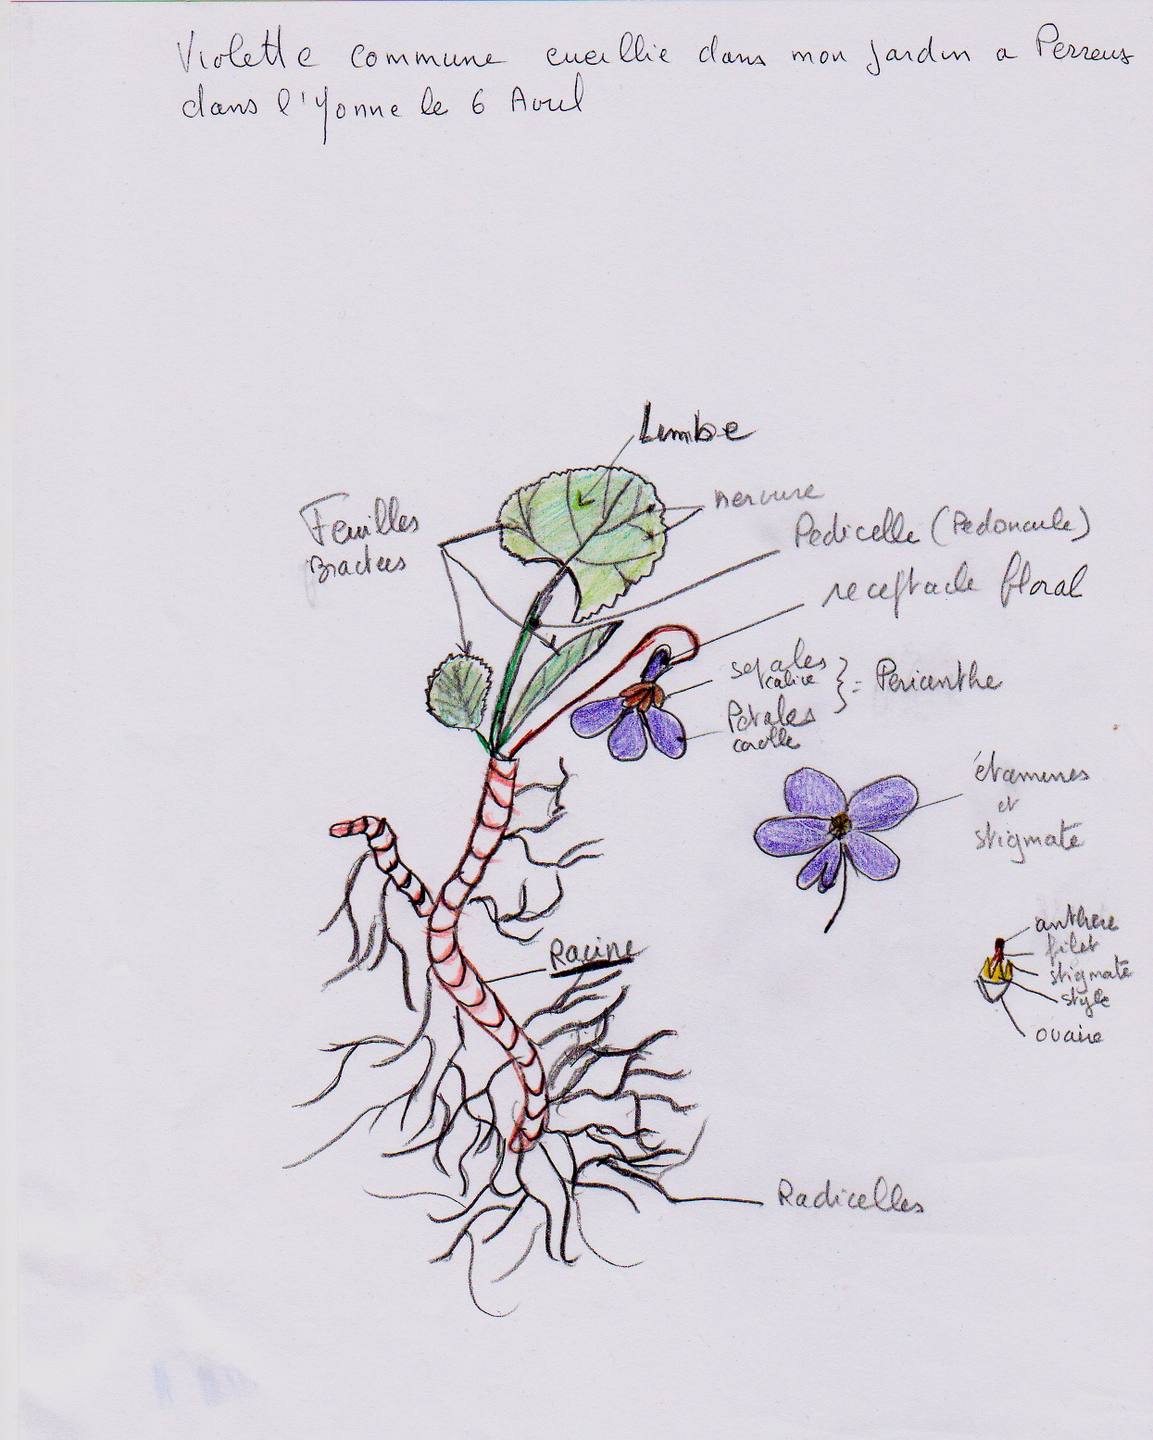 Violette commune cueillie dans mon jardin a Perreux
dans l'Yonne le 6 Avril
Limbe
nervure
Feuilles
Bractees
Pedicelle (Pedoncule)
receptacle floral
sepales
calice
} = Perianthe
Pétales
corolle
étamines
et
stigmate
anthere
filet
stigmate
style
ovaire
Racine
Radicelles